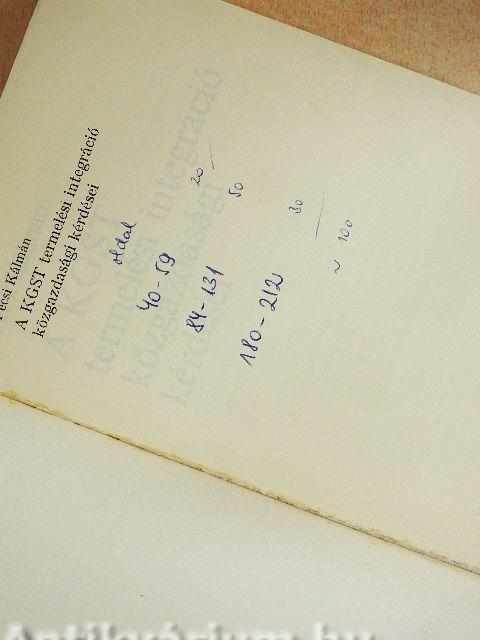 Pécsi Kálmán
A KGST termelési integráció
közgazdasági kérdései
oldal
40-59 20
84-131 50
180-212 30
~ 100
A KGST
termelési integráció
közgazdasági
kérdései
Antikvárium.hu